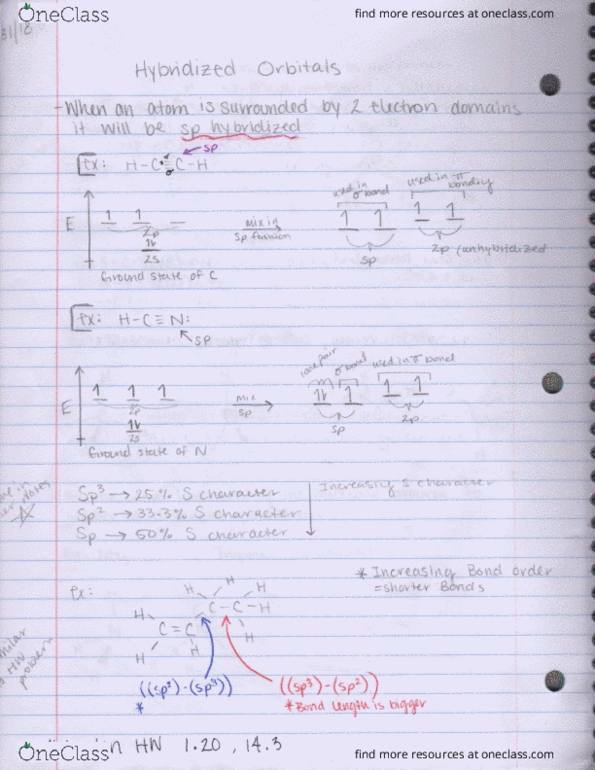 OneClass
find more resources at oneclass.com
31/18
Hybridized Orbitals
- When an atom is surrounded by 2 electron domains
it will be sp hybridized
Ex: H-C C-H
sp
π
σ
used in σ bond
used in π bonding
E
1 1
2p
1v
2s
mix in sp fashion
1 1
sp
1 1
2p (unhybridized
Ground state of C
Ex: H-C≡N:
sp
lone pair
σ bond
used in π bond
E
1 1 1
2p
1v
2s
mix
sp
1v 1
sp
1 1
2p
Ground state of N
Sp³ → 25% S character
Sp² → 33.3% S character
Sp → 50% S character
Increasing S character
* Increasing Bond order
= shorter Bonds
Ex:
H H H
H C-C-H
C=C H
H H
((sp²)-(sp³))
*
((sp³)-(sp²))
* Bond length is bigger
in HW 1.20, 14.3
OneClass
find more resources at oneclass.com